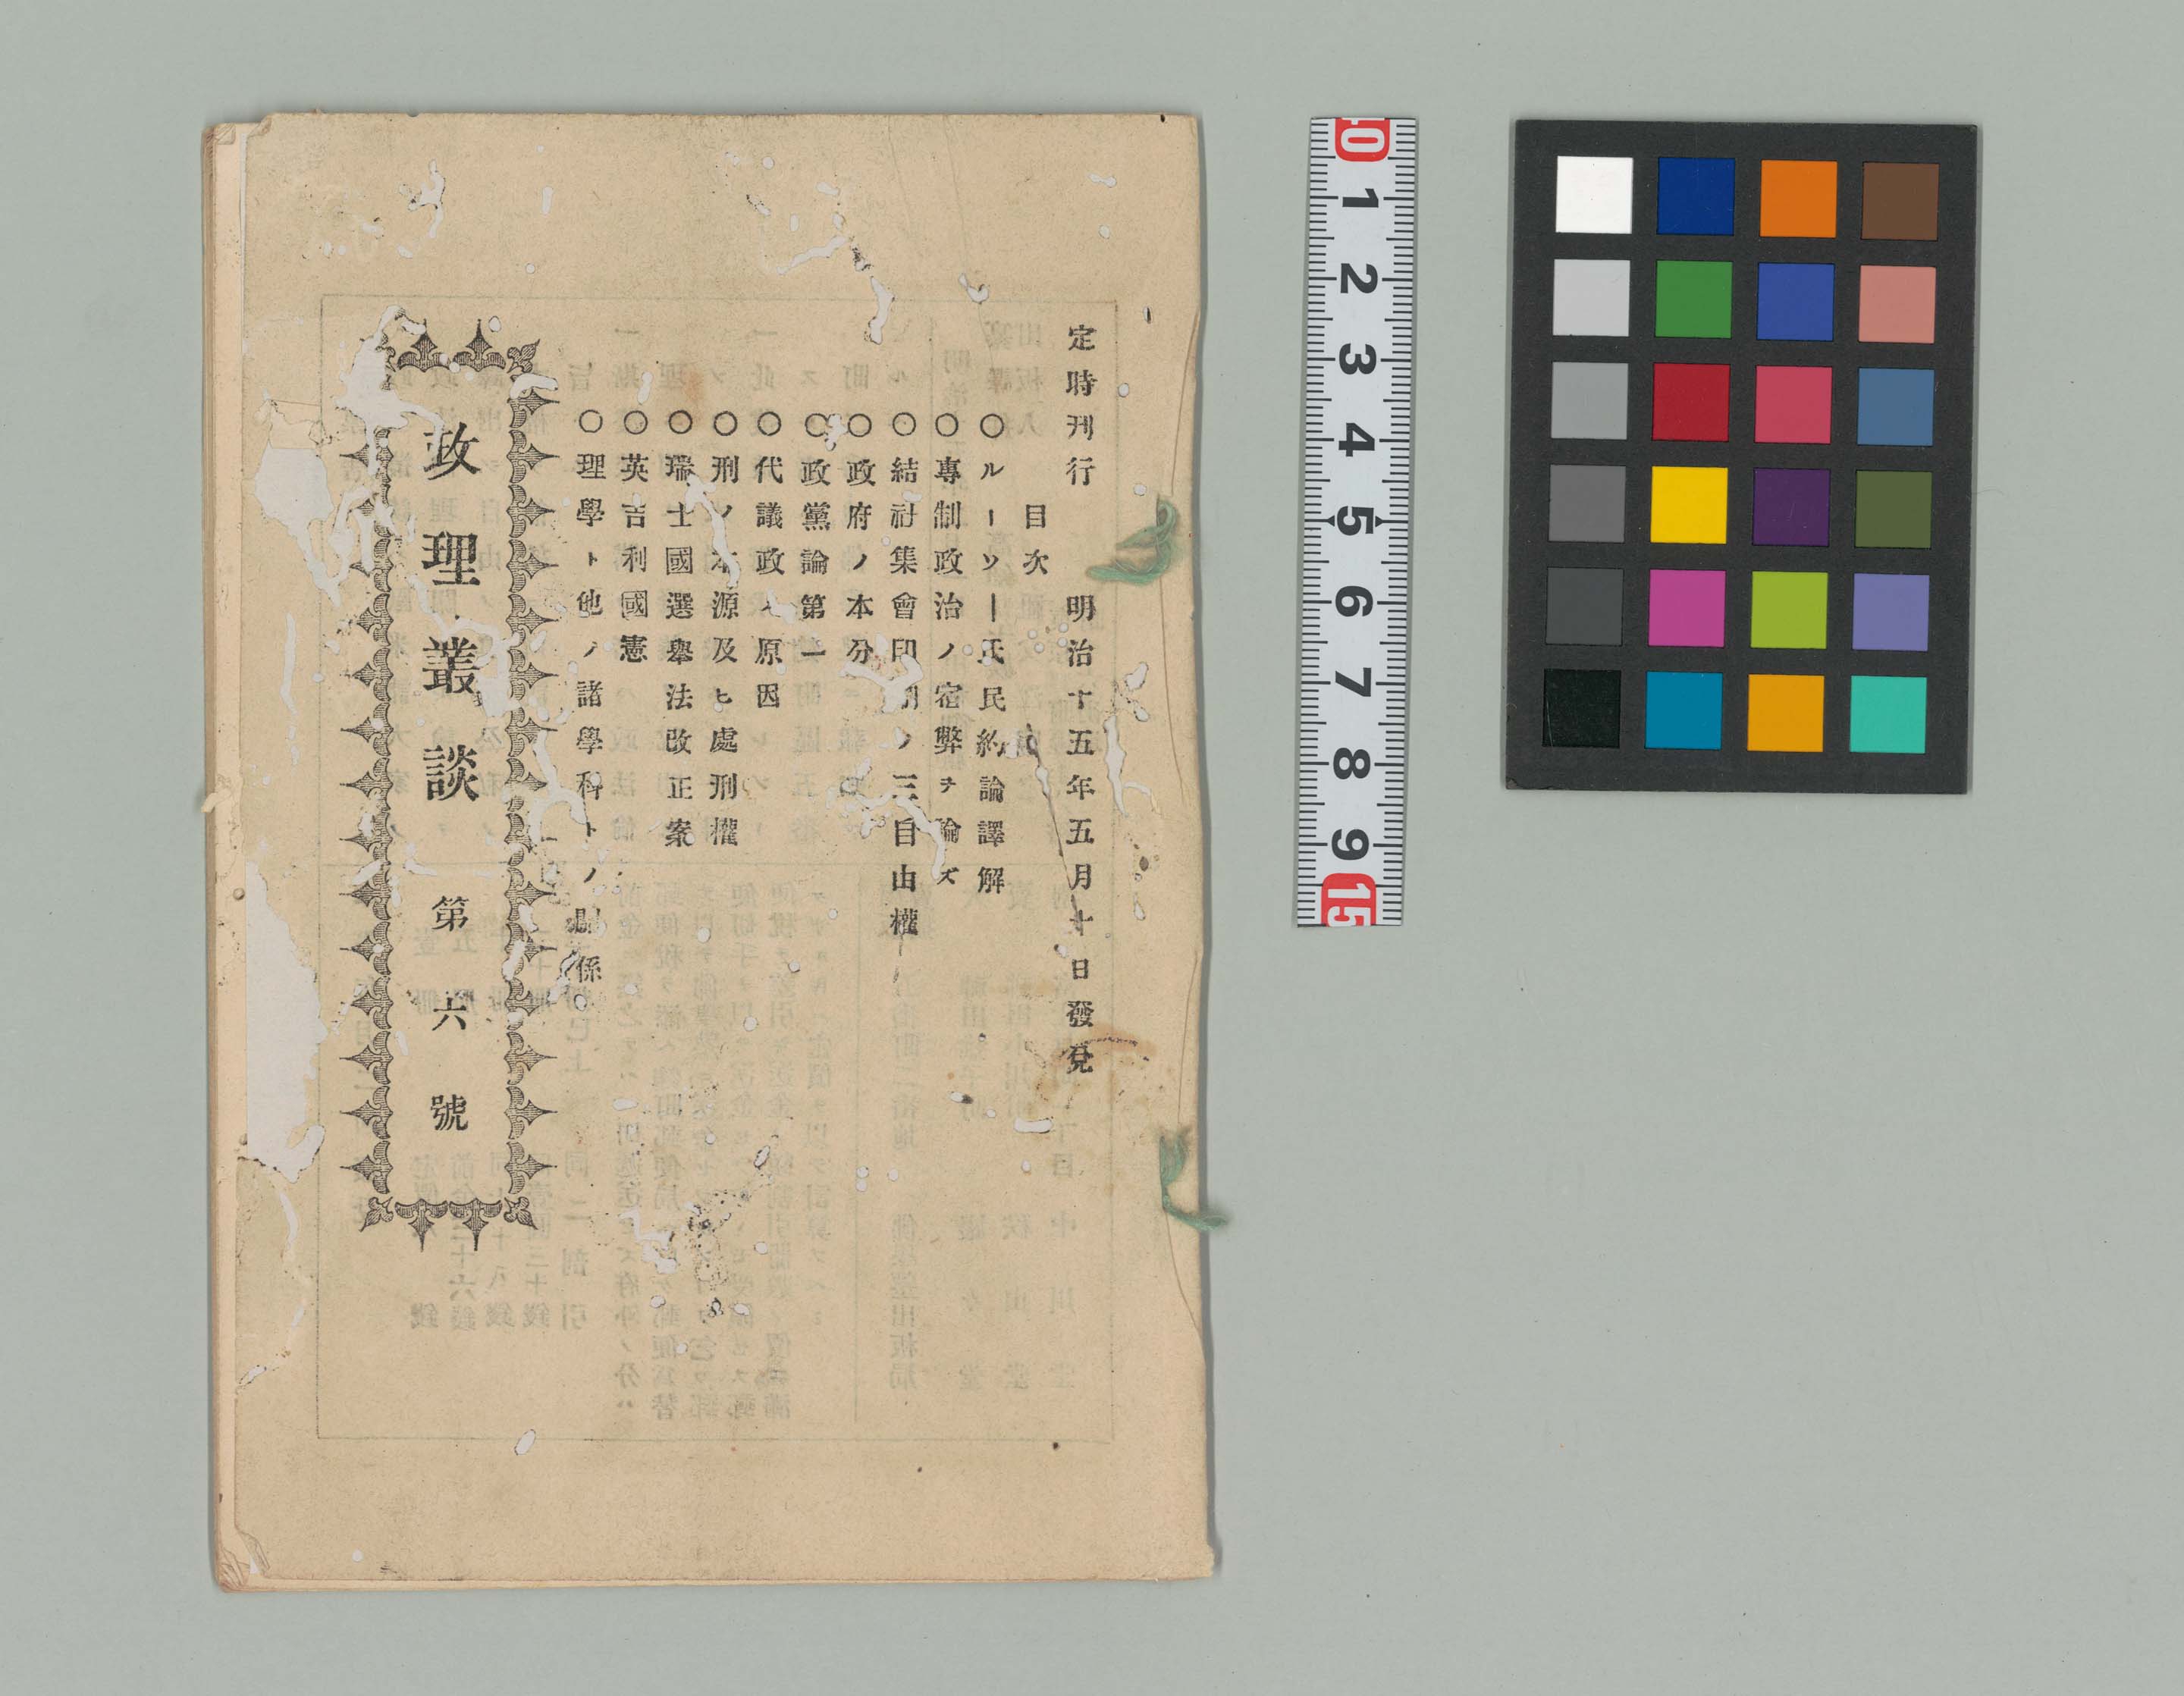 定時刊行 明治十五年五月十日發兌
目次
○ルーソー氏民約論譯解
○專制政治ノ宿弊ヲ論ズ
○結社集會印刷ノ三自由權
○政府ノ本分
○政黨論第一
○代議政ノ原因
○刑ノ本源及ヒ處刑權
○瑞士國選舉法改正案
○英吉利國憲
○理學ト他ノ諸學科トノ關係
政理叢談 第六號
0 1 2 3 4 5 6 7 8 9 15